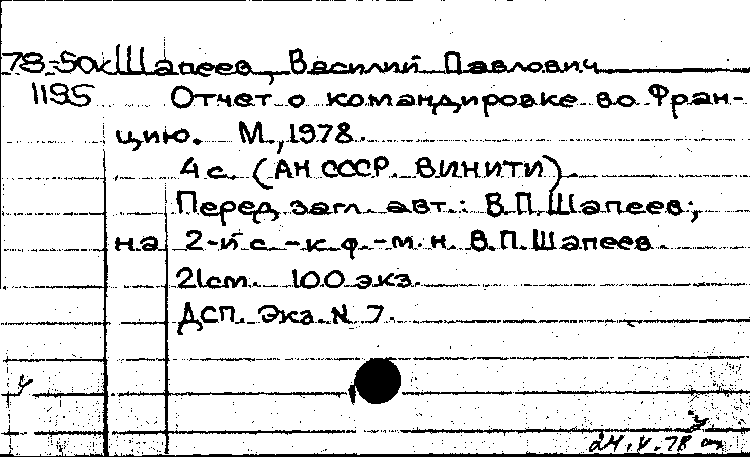 78-50к Шапеев, Василий Павлович
1195 Отчет о командировке во Фран-
цию. М., 1978.
4 с. (АН СССР. ВИНИТИ).
Перед загл. авт.: В.П.Шапеев;
на 2-й с. - к.ф.-м.н. В.П.Шапеев.
21см. 100 экз.
ДСП. Экз. N 7.
24.V.78